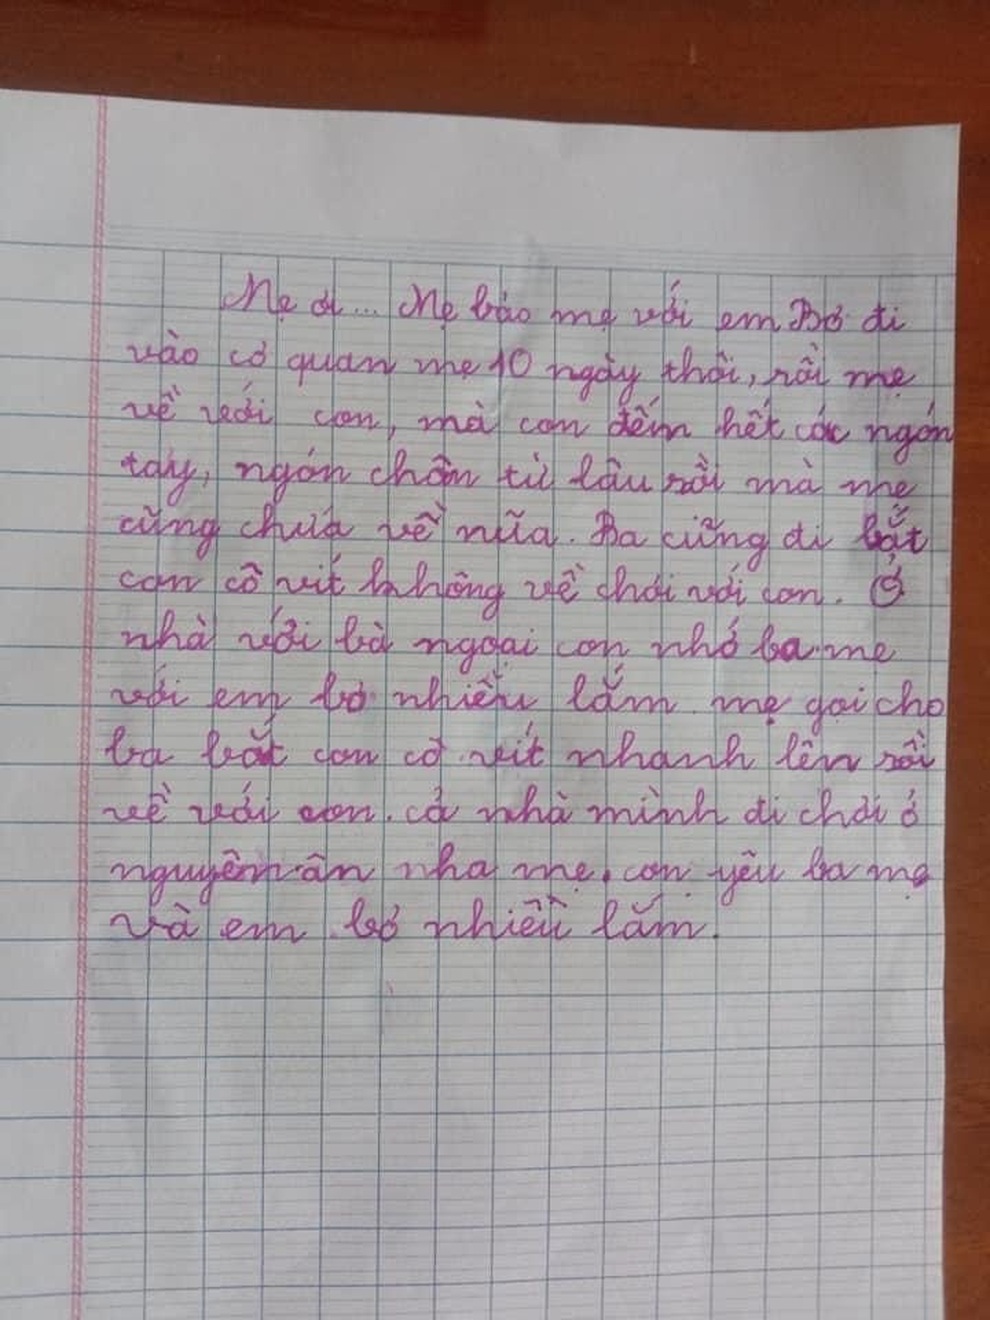 Mẹ ơi... Mẹ bảo mẹ với em Bơ đi
vào cơ quan mẹ 10 ngày thôi, rồi mẹ
về với con, mà con đếm hết các ngón
tay, ngón chân từ lâu rồi mà mẹ
cũng chưa về nữa. Ba cũng đi bắt
con cô vít không về chơi với con. Ở
nhà với bà ngoại con nhớ ba mẹ
với em bơ nhiều lắm. mẹ gọi cho
ba bắt con cô vít nhanh lên rồi
về với con. cả nhà mình đi chơi ở
nguyên ân nha mẹ. con yêu ba mẹ
và em bơ nhiều lắm.